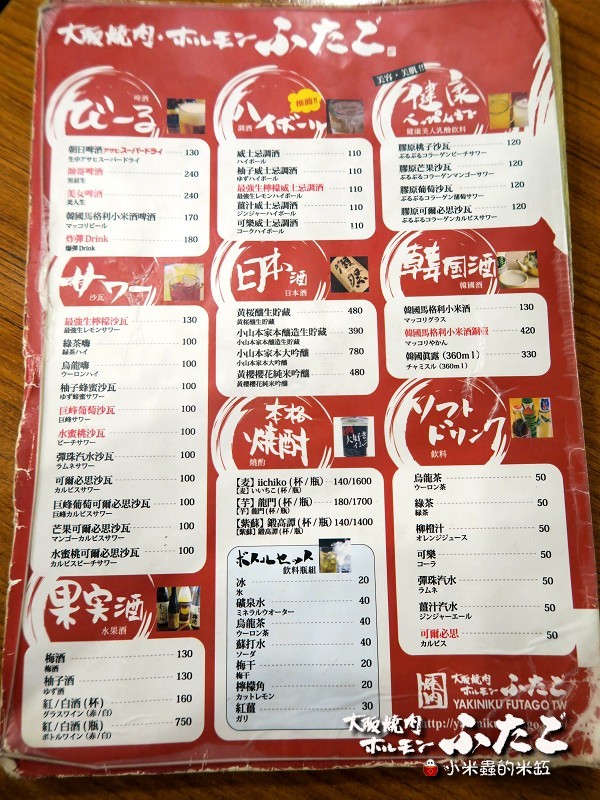 大阪焼肉・ホルモン ふたご
びーる
啤酒
朝日啤酒 アサヒスーパードライ 130
生中アサヒスーパードライ
帥哥啤酒 240
男前生
美女啤酒 240
美人生
韓國馬格利小米酒啤酒 170
マッコリビール
炸彈Drink 180
爆弾Drink
ハイボール
調酒
推薦!!
威士忌調酒 110
ハイボール
柚子威士忌調酒 110
ゆずハイボール
最強生檸檬威士忌調酒 110
最強生レモンハイボール
薑汁威士忌調酒 110
ジンジャーハイボール
可樂威士忌調酒 110
コークハイボール
美容・美肌!!
健康
健康美人乳酸飲料
膠原桃子沙瓦 120
ぷるぷるコラーゲンピーチサワー
膠原芒果沙瓦 120
ぷるぷるコラーゲンマンゴーサワー
膠原葡萄沙瓦 120
ぷるぷるコラーゲン葡萄サワー
膠原可爾必思沙瓦 120
ぷるぷるコラーゲンカルピスサワー
サワー
沙瓦
最強生檸檬沙瓦 100
最強生レモンサワー
綠茶嗨 100
緑茶ハイ
烏龍嗨 100
ウーロンハイ
柚子蜂蜜沙瓦 100
ゆず蜂蜜サワー
巨峰葡萄沙瓦 100
巨峰サワー
水蜜桃沙瓦 100
ピーチサワー
彈珠汽水沙瓦 100
ラムネサワー
可爾必思沙瓦 100
カルピスサワー
巨峰葡萄可爾必思沙瓦 100
巨峰カルピスサワー
芒果可爾必思沙瓦 100
マンゴーカルピスサワー
水蜜桃可爾必思沙瓦 100
カルピスピーチサワー
日本酒
日本酒
黃桜釀生貯藏 480
黃桜釀生貯藏
小山本家本釀造生貯藏 390
小山本家本釀造生貯藏
小山本家大吟釀 780
小山本家大吟釀
黃櫻櫻花純米吟釀 480
黃櫻櫻花純米吟釀
韓国酒
韓國酒
韓國馬格利小米酒 130
マッコリグラス
韓國馬格利小米酒銅壺 420
マッコリやかん
韓國真露(360ml) 330
チャミスル(360ml)
本格焼酎
焼酌
【麦】iichiko(杯/瓶) 140/1600
【麦】いいちこ(杯/瓶)
【芋】龍門(杯/瓶) 180/1700
【芋】龍門(杯/瓶)
【紫蘇】鍛高譚(杯/瓶) 140/1400
【紫蘇】鍛高譚(杯/瓶)
ソフトドリンク
飲料
烏龍茶 50
ウーロン茶
綠茶 50
緑茶
柳橙汁 50
オレンジジュース
可樂 50
コーラ
彈珠汽水 50
ラムネ
薑汁汽水 50
ジンジャーエール
可爾必思 50
カルピス
ボトルセット
飲料瓶組
冰 20
氷
礦泉水 40
ミネラルウオーター
烏龍茶 40
ウーロン茶
蘇打水 40
ソーダ
梅干 20
梅干
檸檬角 20
カットレモン
紅薑 30
ガリ
果実酒
水果酒
梅酒 130
梅酒
柚子酒 130
ゆず酒
紅/白酒(杯) 160
グラスワイン(赤/白)
紅/白酒(瓶) 750
ボトルワイン(赤/白)
大阪焼肉ホルモン ふたご
YAKINIKU FUTAGO TW
大阪焼肉ホルモン ふたご
小米蟲的米缸